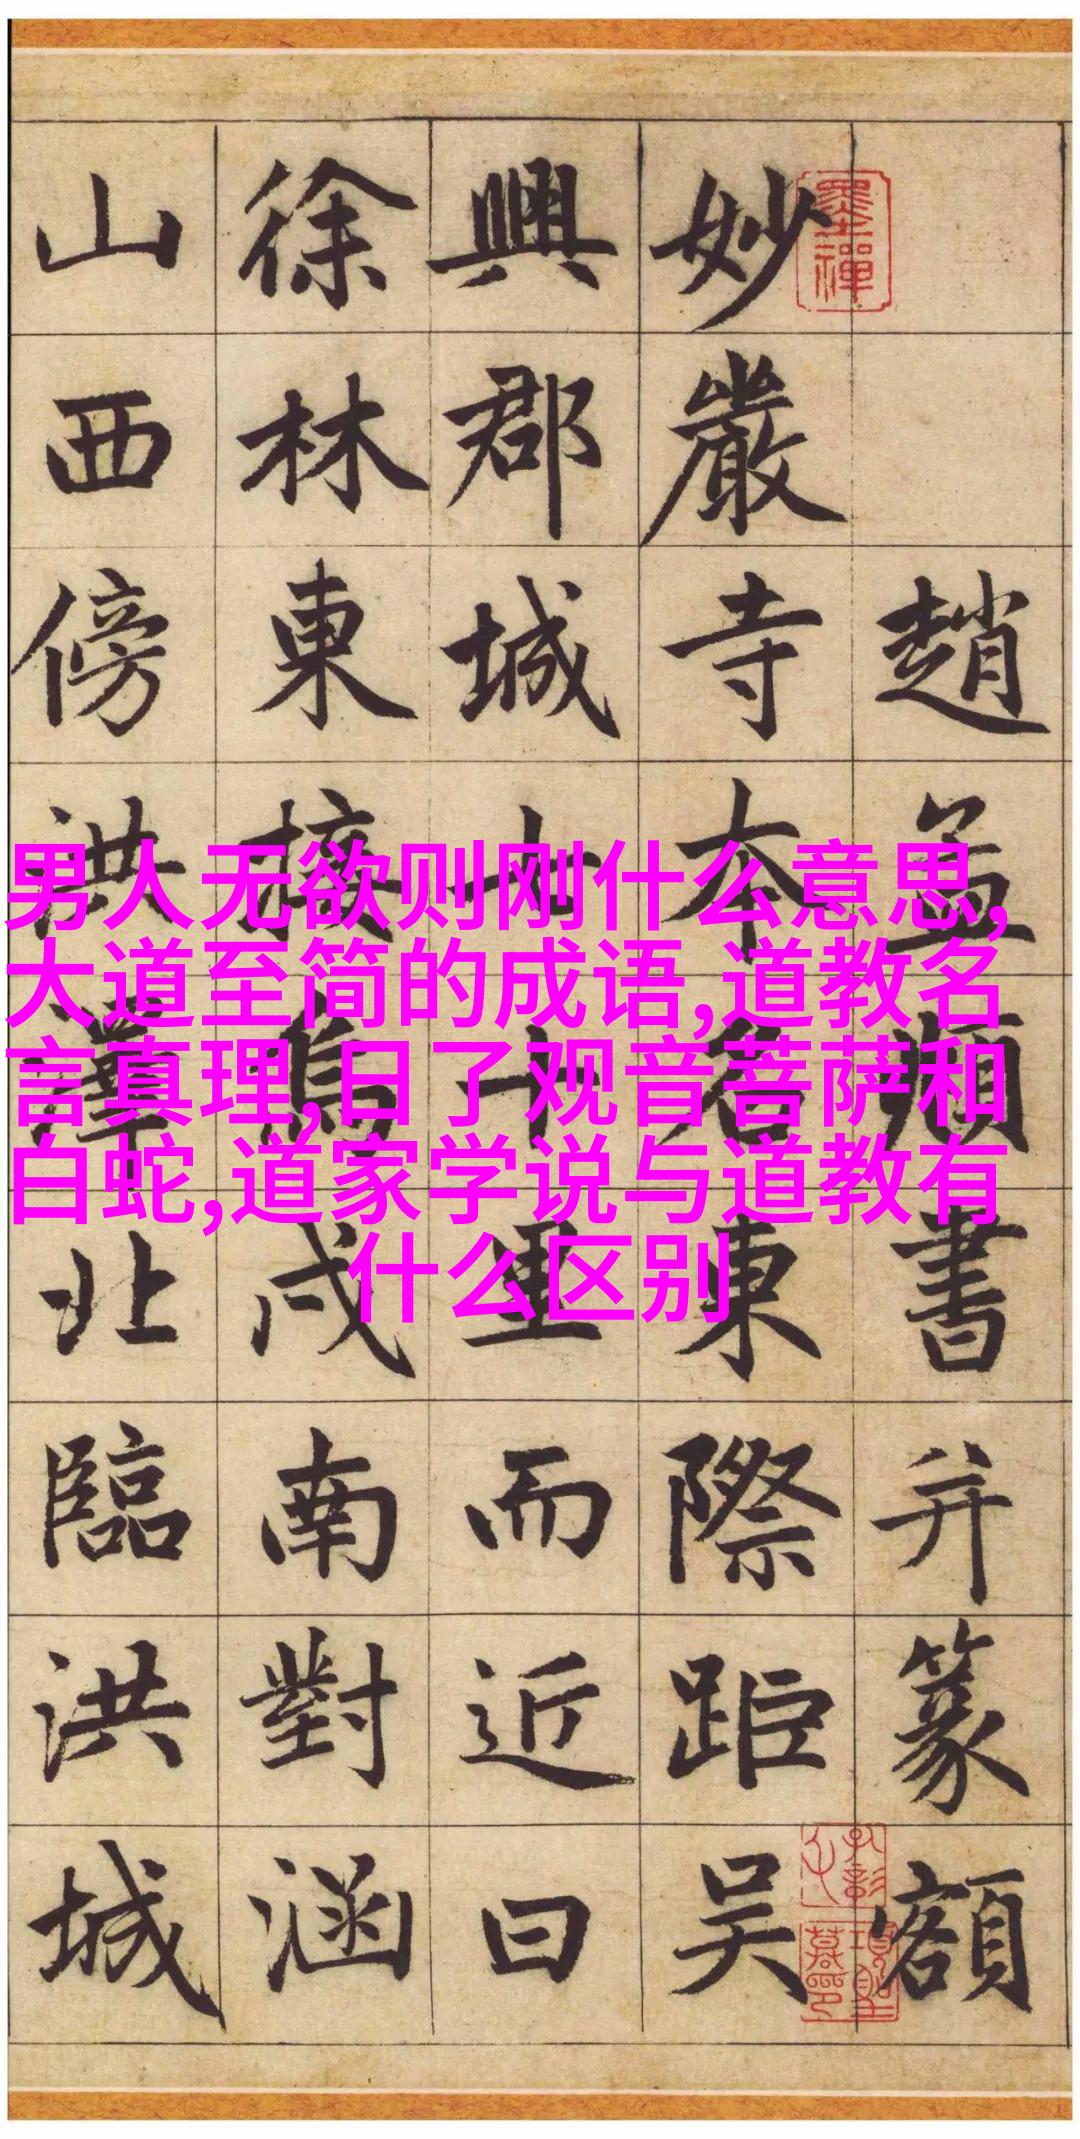 趙孟頫書并篆額
妙嚴寺本名東際距吳
興郡城七十里而近曰
徐林東接烏戍南對涵
山西傍洪澤北臨洪城
墨禪
男人无欲则刚什么意思,
大道至简的成语,道教名
言真理,日了观音菩萨和
白蛇,道家学说与道教有
什么区别